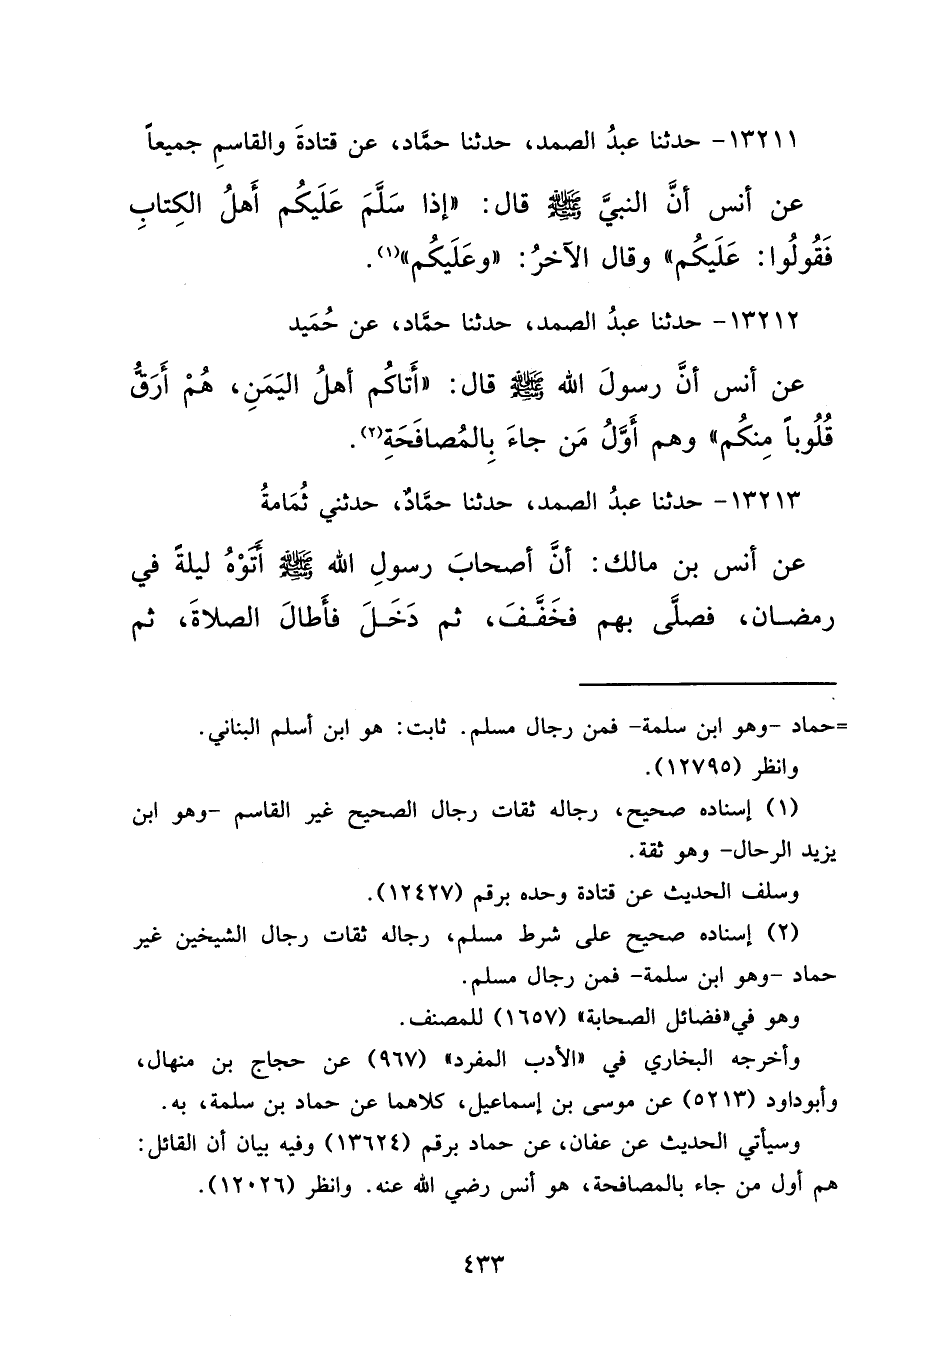 ١٣٢١١- حدثنا عبدُ الصمد، حدثنا حمَّاد، عن قتادةَ والقاسمِ جميعاً
عن أنس أنَّ النبيَّ ﷺ قال: «إذا سَلَّمَ عَلَيكُم أَهلُ الكِتابِ
فَقُولُوا: عَلَيكُم» وقال الآخرُ: «وعَلَيكُم»(١).
١٣٢١٢- حدثنا عبدُ الصمد، حدثنا حمَّاد، عن حُمَيد
عن أنس أنَّ رسولَ الله ﷺ قال: «أَتاكُم أهلُ اليَمَنِ، هُمْ أَرَقُّ
قُلُوباً مِنكُم» وهم أَوَّلُ مَن جاءَ بِالمُصافَحَةِ(٢).
١٣٢١٣- حدثنا عبدُ الصمد، حدثنا حمَّادٌ، حدثني ثُمَامةُ
عن أنس بن مالك: أنَّ أصحابَ رسولِ الله ﷺ أَتَوْهُ ليلةً في
رمضان، فصلَّى بهم فخَفَّفَ، ثم دَخَلَ فأَطالَ الصلاةَ، ثم
=حماد -وهو ابن سلمة- فمن رجال مسلم. ثابت: هو ابن أسلم البناني.
وانظر (١٢٧٩٥).
(١) إسناده صحيح، رجاله ثقات رجال الصحيح غير القاسم -وهو ابن
يزيد الرحال- وهو ثقة.
وسلف الحديث عن قتادة وحده برقم (١٢٤٢٧).
(٢) إسناده صحيح على شرط مسلم، رجاله ثقات رجال الشيخين غير
حماد -وهو ابن سلمة- فمن رجال مسلم.
وهو في«فضائل الصحابة» (١٦٥٧) للمصنف.
وأخرجه البخاري في «الأدب المفرد» (٩٦٧) عن حجاج بن منهال،
وأبوداود (٥٢١٣) عن موسى بن إسماعيل، كلاهما عن حماد بن سلمة، به.
وسيأتي الحديث عن عفان، عن حماد برقم (١٣٦٢٤) وفيه بيان أن القائل:
هم أول من جاء بالمصافحة، هو أنس رضي الله عنه. وانظر (١٢٠٢٦).
٤٣٣